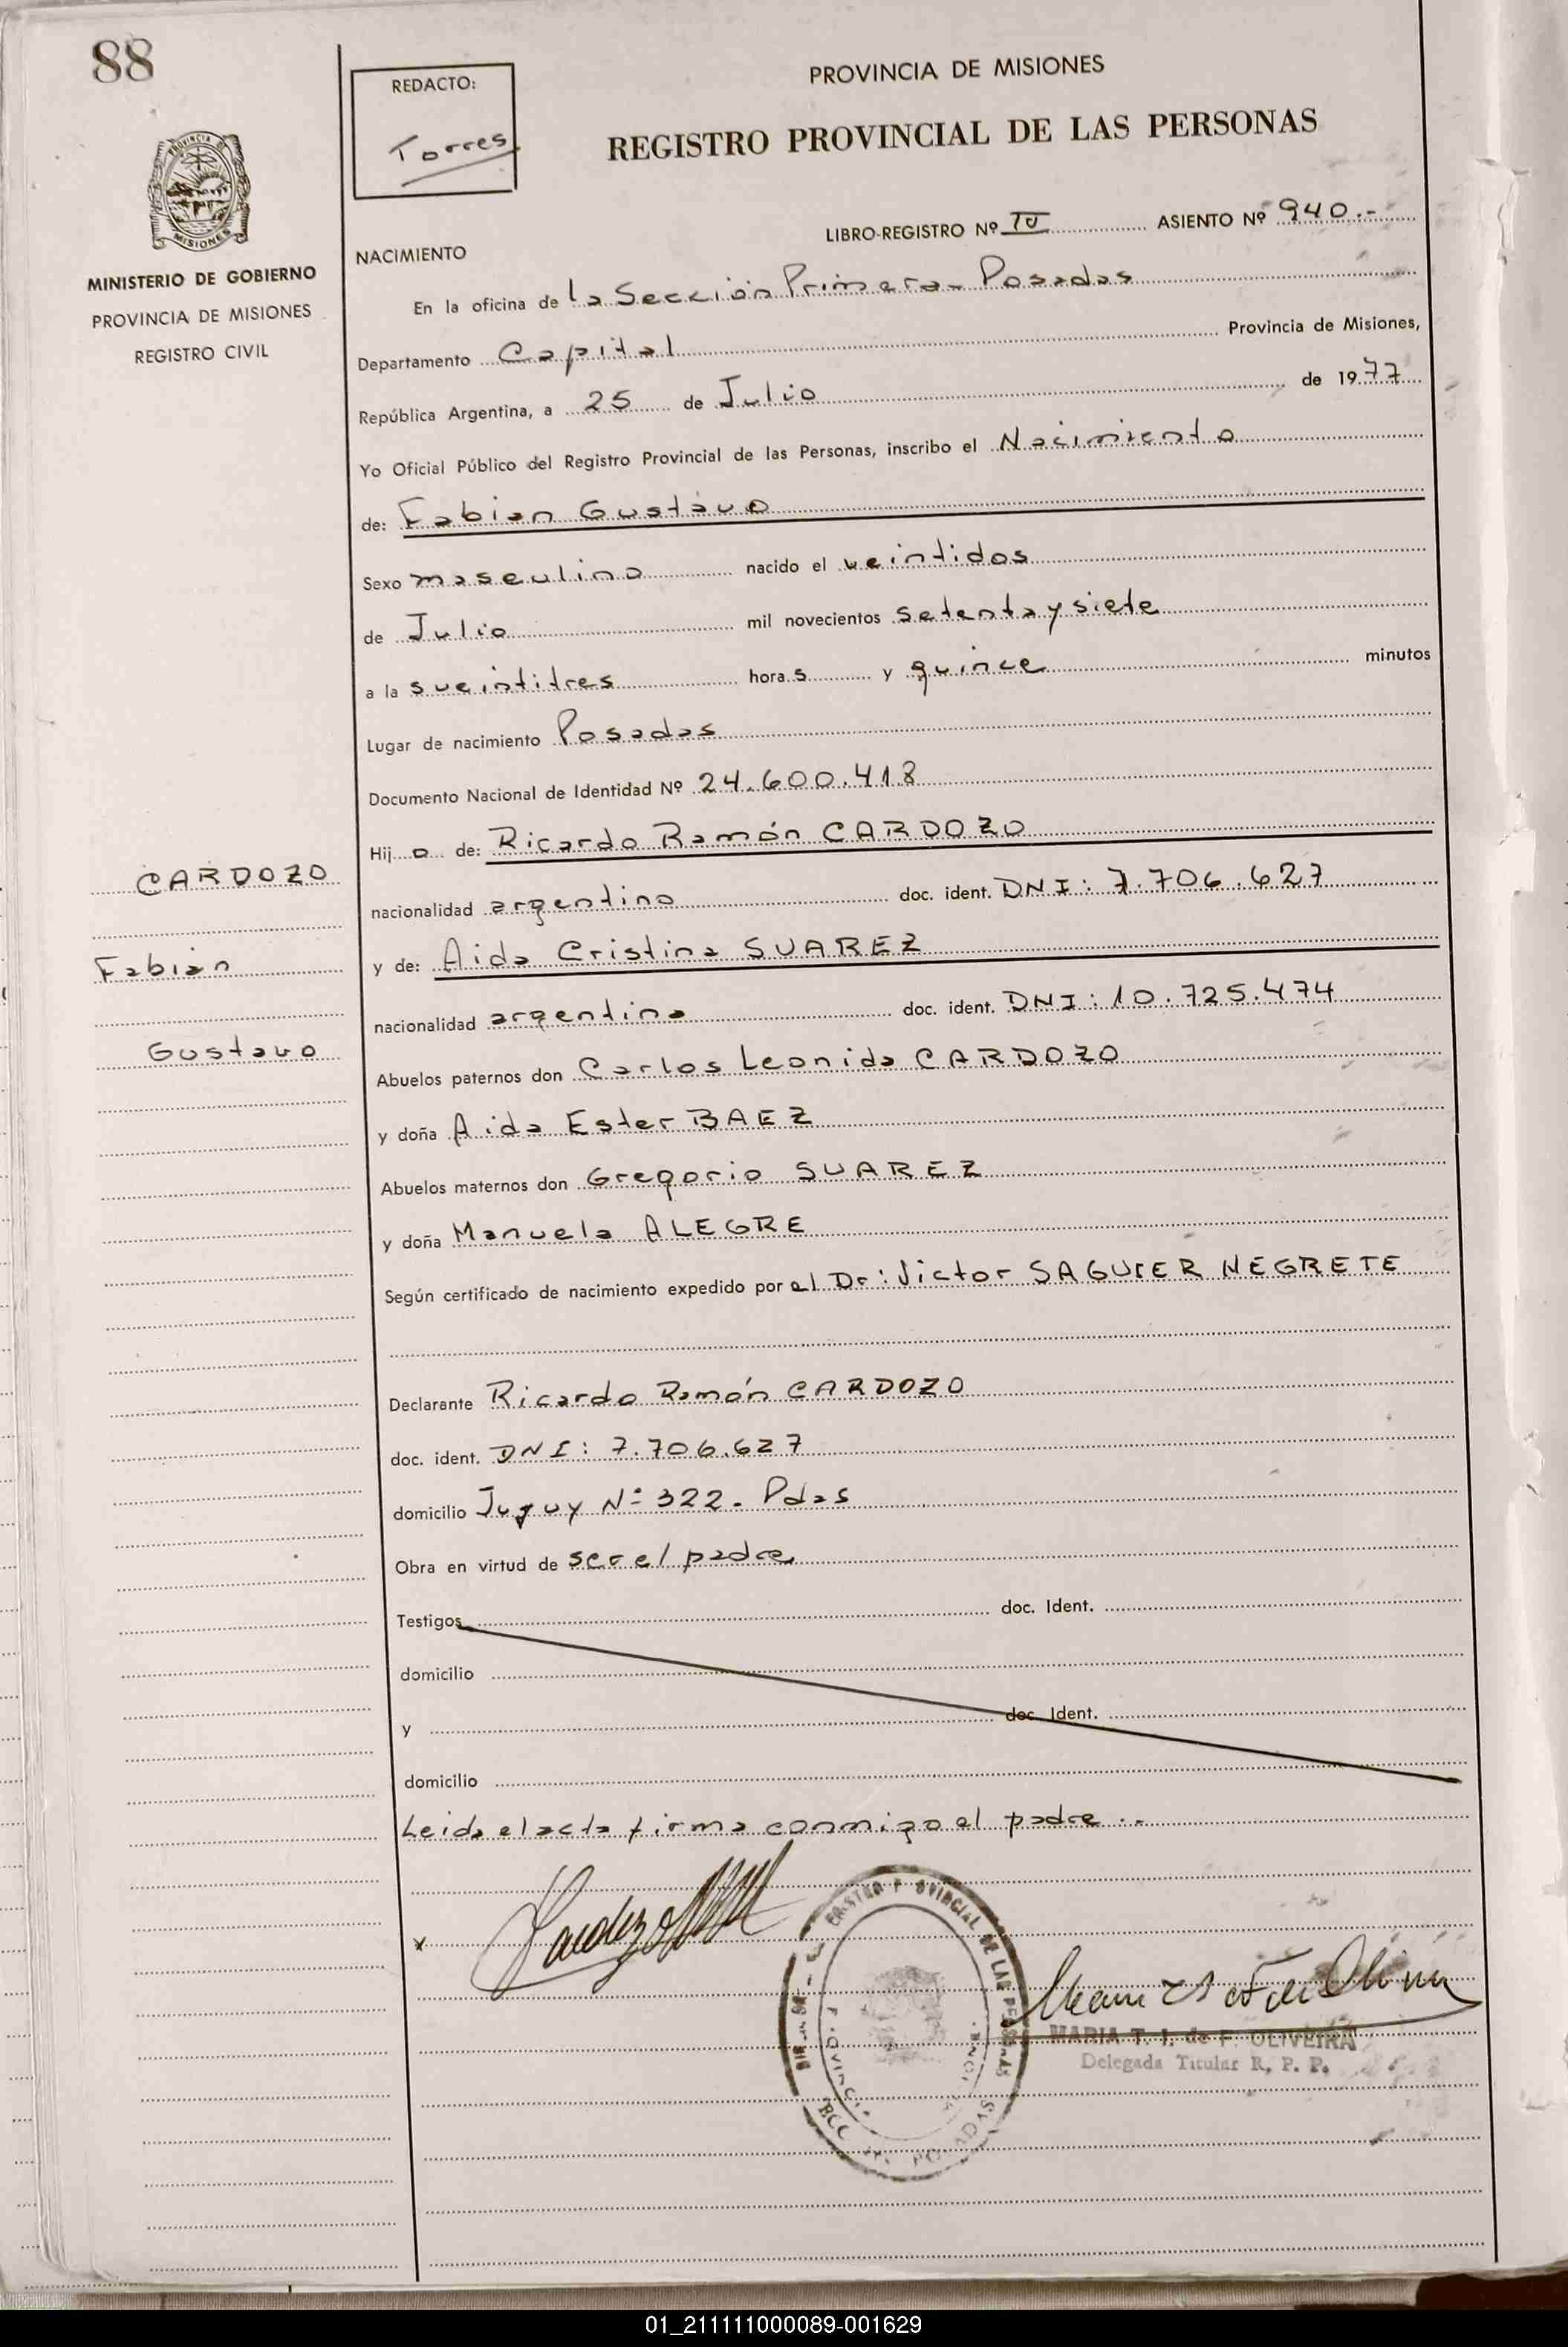 88
REDACTO:
Torres
PROVINCIA DE MISIONES
REGISTRO PROVINCIAL DE LAS PERSONAS
PROVINCIA
MISIONES
MINISTERIO DE GOBIERNO
PROVINCIA DE MISIONES
REGISTRO CIVIL
LIBRO-REGISTRO Nº IV ASIENTO Nº 940.-
NACIMIENTO
En la oficina de la Sección Primera- Posadas
Departamento Capital Provincia de Misiones,
República Argentina, a 25 de Julio de 1977
Yo Oficial Público del Registro Provincial de las Personas, inscribo el Nacimiento
de: Fabian Gustavo
Sexo masculino nacido el veintidos
de Julio mil novecientos setenta y siete
a la s veintitres hora s y quince minutos
Lugar de nacimiento Posadas
Documento Nacional de Identidad Nº 24.600.418
Hij o de: Ricardo Ramón CARDOZO
CARDOZO
nacionalidad argentino doc. ident. DNI: 7.706.627
Fabian
y de: Aida Cristina SUAREZ
nacionalidad argentina doc. ident. DNI: 10.725.474
Gustavo
Abuelos paternos don Carlos Leonida CARDOZO
y doña Aida Ester BAEZ
Abuelos maternos don Gregorio SUAREZ
y doña Manuela ALEGRE
Según certificado de nacimiento expedido por el Dr: Victor SAGUIER NEGRETE
Declarante Ricardo Ramón CARDOZO
doc. ident. DNI: 7.706.627
domicilio Jujuy Nº 322. Pdas
Obra en virtud de ser el padre
Testigos doc. Ident.
domicilio
y doc. Ident.
domicilio
Leida el acta firma conmigo el padre..
x Cardozo
MARIA T. I. de F. OLIVEIRA
Delegada Titular R. P. P.
01_211111000089-001629